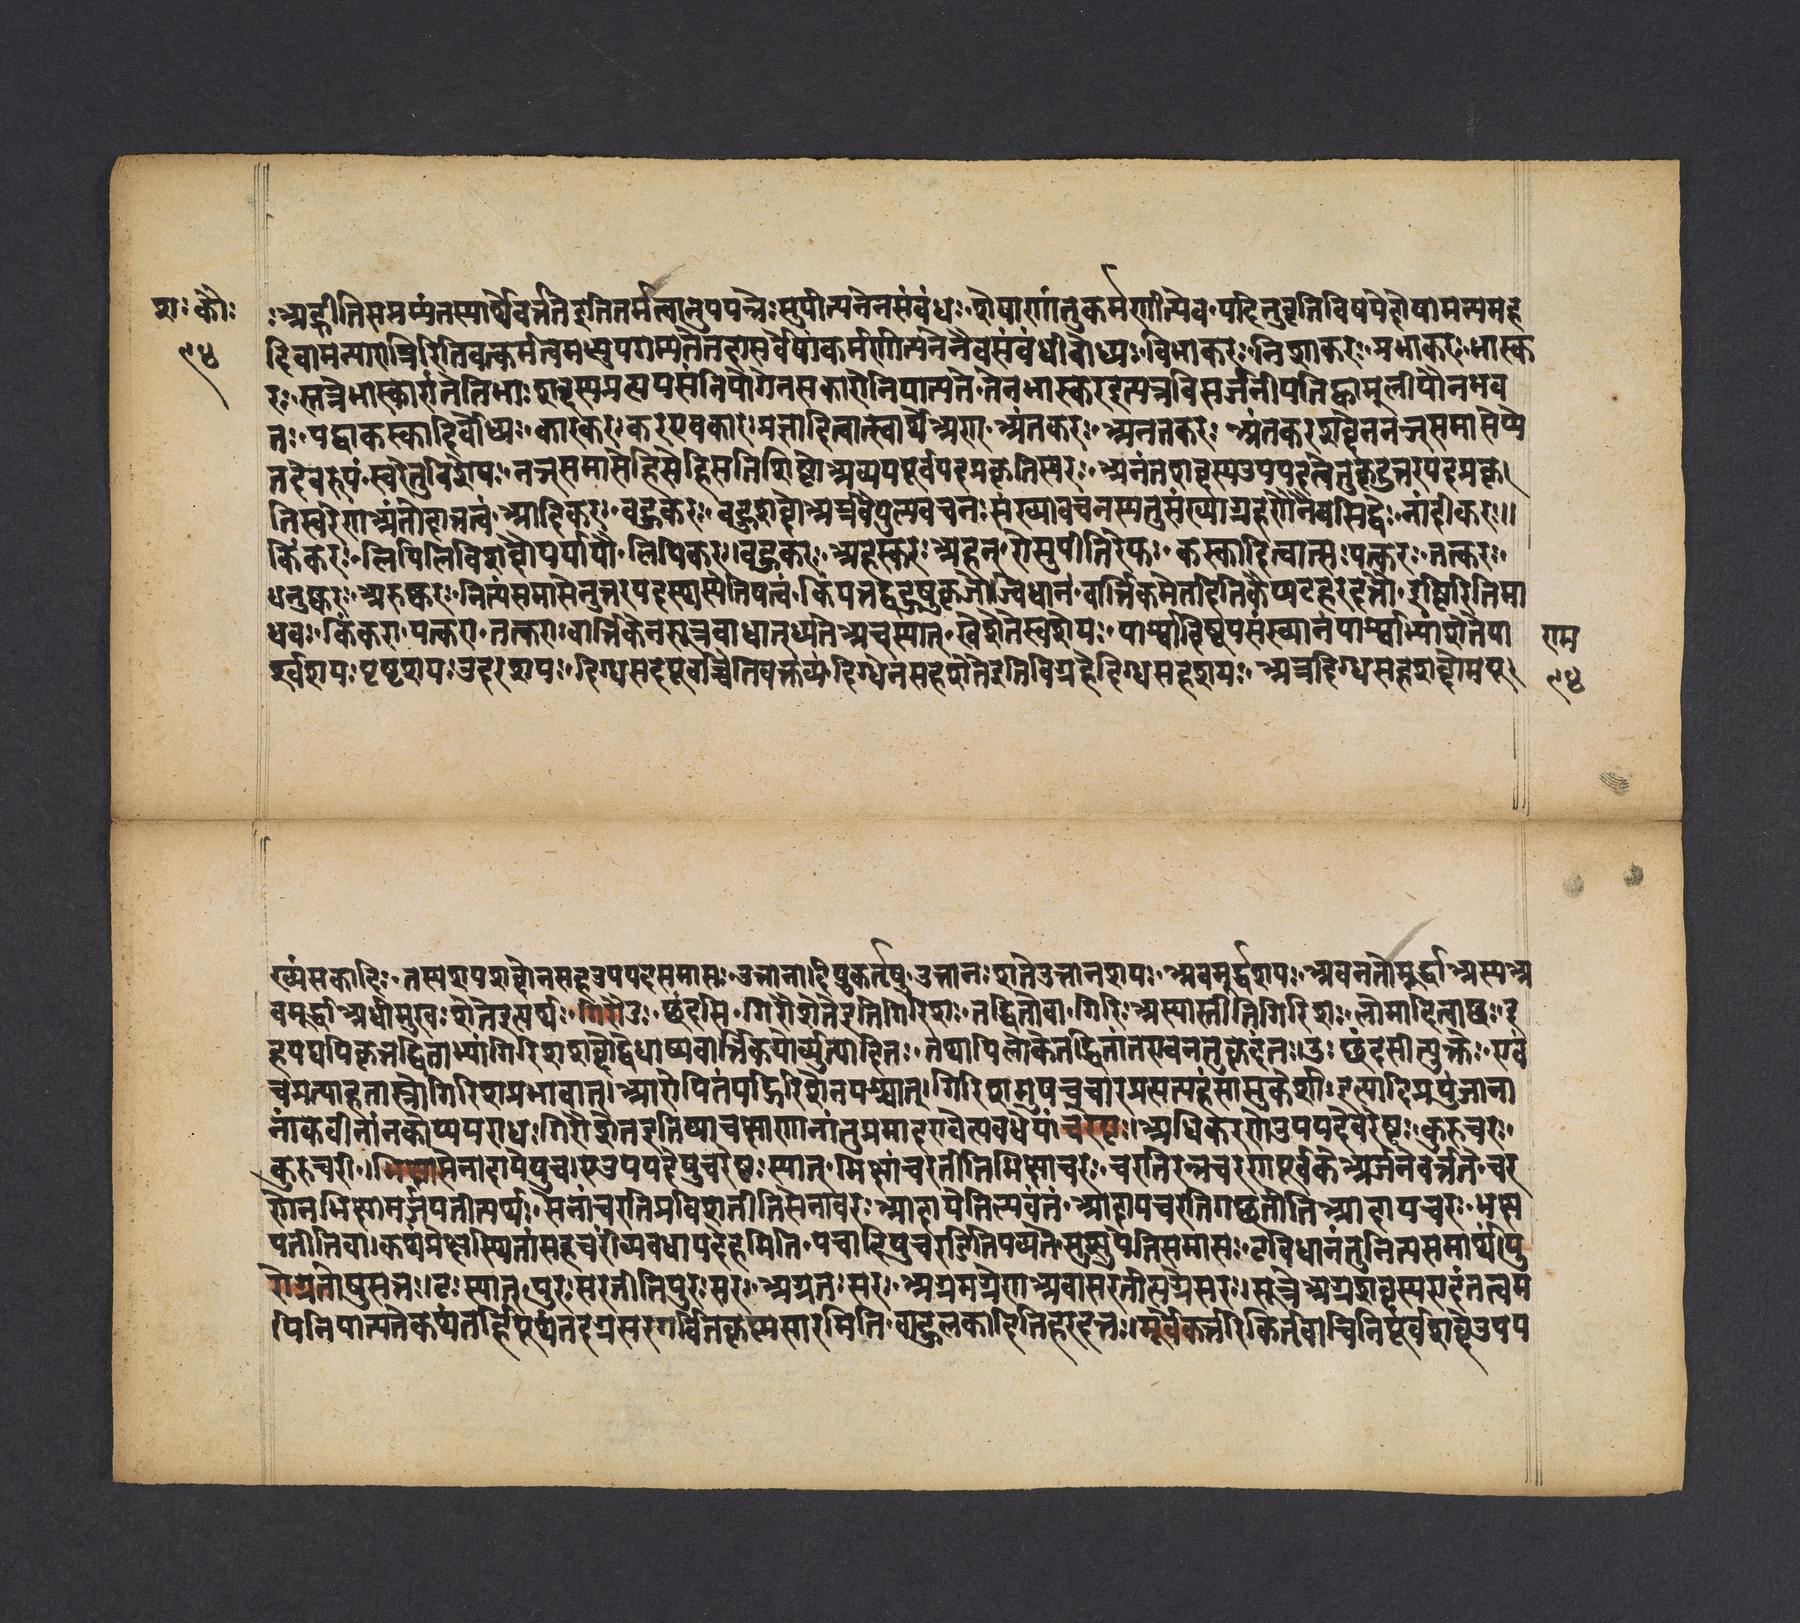 श॰ कौ॰
९४
ःअह्नीतिसप्तम्यंतस्यार्थेवर्त्ततइतितर्मत्वानुपपत्तेःसुपीत्यनेनसंबंधः शेषाणांतुकर्मणीत्येव यदितुवृत्तिविषयेदोषामन्यमह
दिवामन्यारात्रिरितिवत्कर्मत्वमभ्युपगम्यतेतदासर्वेषांकर्मणीत्यनेनैवसंबंधोबोध्यः विभाकरः निशाकरः प्रभाकरः भास्क
रः सूत्रेभास्कारांतेतिभाःशब्दस्यप्रत्ययसंनियोगेनसकारोनिपात्यते तेनभास्करइत्यत्रविसर्जनीयजिह्वामूलीयौनभव
तः यद्वाकस्कादिर्बोध्यः कारकरः करएवकारः प्रज्ञादित्वात्स्वार्थेअण् अंतकरः अनंतकरः अंतकरशब्देननञ्समासेप्ये
तदेवरूपं स्वरेतुविशेषः नञ्समासेहिसेहिसतिशिष्टोअव्ययपूर्वपदप्रकृतिस्वरः अनंतशब्दस्यउपपदत्वेतुकृदुत्तरपदप्रकृ
तिस्वरेणअंतोदात्तत्वं आदिकरः बहुकरः बहुशब्दोअत्रवैपुल्यवचनः संख्यावचनस्यतुसंख्याग्रहणेनैवसिद्धेः नांदीकरः॥
किंकरः लिपिलिबिशब्दौपर्यायौ लिपिकरः बहुकरः अहस्करः अहन् रोसुपीतिरेफः कस्कादित्वात्सः यत्करः तत्करः
धनुष्करः अरुष्करः नित्यंसमासेनुत्तरपदस्थस्येतिषत्वं किंयत्तद्बहुषुकृञोज्विधानं वार्त्तिकमेतदितिकैयटहरदत्तौ इष्टिरितिमा
धवः किंकरा यत्करा तत्करा वार्त्तिकेनसूत्रबाधानर्थ्यते अच् स्यात् खेशेतेखशयः पार्श्वादिषूपसंख्यानं पार्श्वाभ्यांशेतेपा
र्श्वशयः पृष्ठशयः उदरशयः दिग्धसहपूर्वाच्चेतिवक्तव्यं दिग्धेनसहशेतेइतिविग्रहेदिग्धसहशयः अत्रदिग्धसहशब्दोमयू
राम
९४
रव्यंसकादिः तस्यशयशब्देनसहउपपदसमासः उत्तानादिषुकर्तृषु उत्तानः शेतेउत्तानशयः अवमूर्द्धशयः अवनतोमूर्द्धाअस्यअ
वमूर्द्धाअधोमुखः शेतेइत्यर्थः गिरौडः छंदसि गिरौशेतेइतिगिरिशः तद्धितोवा गिरिः अस्यास्तीतिगिरिशः लोमादित्वाच्छः इ
हयद्यपिकृत्तद्धिताभ्यांगिरिशशब्दोद्वेधाप्यवार्त्तिकयोर्व्युत्पादितः तथापिलोकेतद्धितांतएवनतुकृदंतः डः छंदसीत्युक्तेः एवं
चप्रत्याहृतास्त्रोगिरिशप्रभावात् आरोपितंयद्गिरिशेनपश्चात् गिरिशमुपचचारप्रत्यहंसासुकेशी इत्यादिप्रयुंजाना
नांकवीनांनकोप्यपराधः गिरौशेतइतिव्याचक्षाणानांतुप्रमादएवेत्यवधेयं चरेष्टः अधिकरणेउपपदेचरेष्टः कुरुचरः
कुरुचरी भिक्षासेनादायेषुच एउपपदेषुचरेष्टः स्यात् भिक्षांचरतीतिभिक्षाचरः चरतिरत्रचरणपूर्वकेअर्जनेवर्त्तते चर
णेनभिक्षामर्जयतीत्यर्थः सेनांचरतिप्रविशतीतिसेनाचरः आदायेतिल्यबंतं आदायचरतिगच्छतीतिआदायचरः भक्ष
यतीतिवा कथंप्रेक्ष्यस्थितांसहचरींव्यवधायदेहमिति पचादिषुचरडितिपठ्यते सुप्सुपेतिसमासः टविधानंतुनित्यसमार्थं पु
रोग्रतोषुसत्तेः टः स्यात् पुरः सरतीतिपुरः सरः अग्रतः सरः अग्रमग्रेणाग्रेवासरतीत्यग्रेसरः सूत्रेअग्रशब्दस्यएदंतत्वम
पिनिपात्यते कथंतर्हियूथंतदग्रसरगर्वितकृष्णसारमिति बाहुलकादितिहरदत्तः पूर्वेकर्त्तरि कर्तृवाचिनिपूर्वशब्देउपप